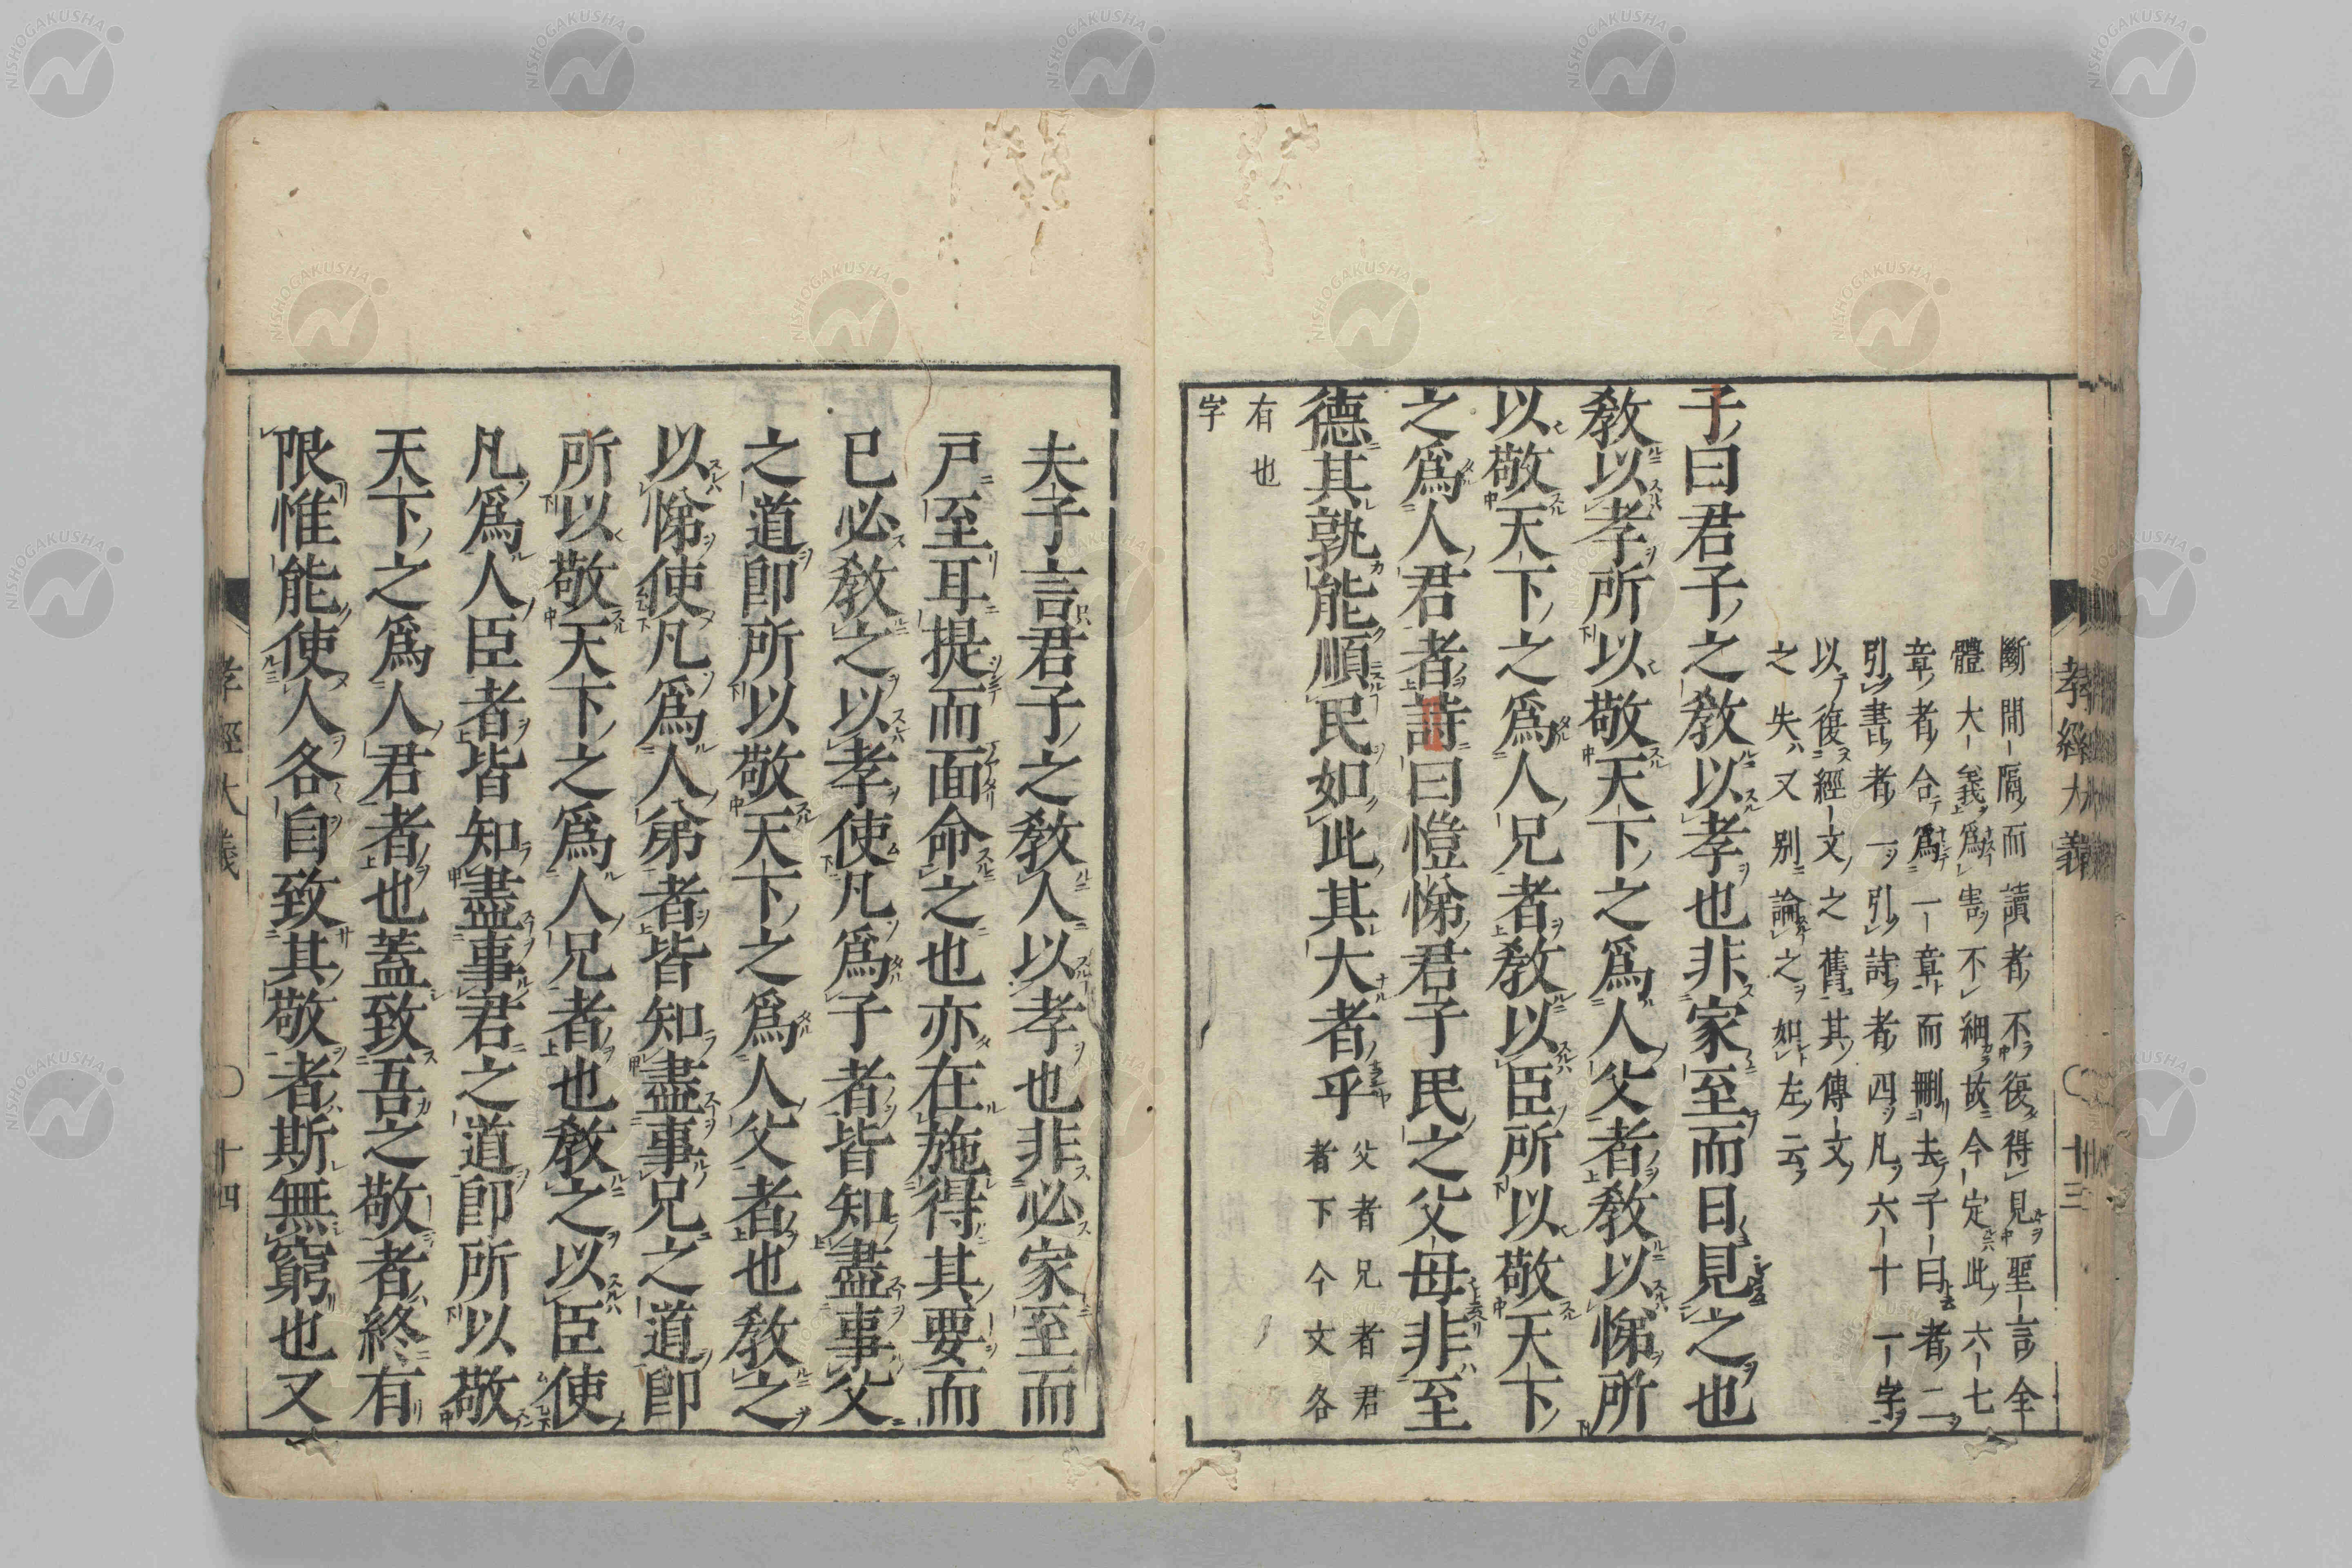 斷間隔而讀者不復得見聖言全
體大義爲害不細故今定此六七
章者合爲一章而刪去子曰者二
引書者一引詩者四凡六十一字
以復經文之舊其傳文
之失又別論之如左云
子曰君子之教以孝也非家至而日見之也
教以孝所以敬天下之爲人父者教以悌所
以敬天下之爲人兄者教以臣所以敬天下
之爲人君者詩曰愷悌君子民之父母非至
德其孰能順民如此其大者乎
父者兄者君
者下今文各
有也
字
孝經大義
十三
夫子言君子之教人以孝也非必家至而
戸至耳提而面命之也亦在施得其要而
已必教之以孝使凡爲子者皆知盡事父
之道即所以敬天下之爲人父者也教之
以悌使凡爲人弟者皆知盡事兄之道即
所以敬天下之爲人兄者也教之以臣使
凡爲人臣者皆知盡事君之道即所以敬
天下之爲人君者也蓋致吾之敬者終有
限惟能使人各自致其敬者斯無窮也又
孝經大義
十四
NISHOGAKUSHA